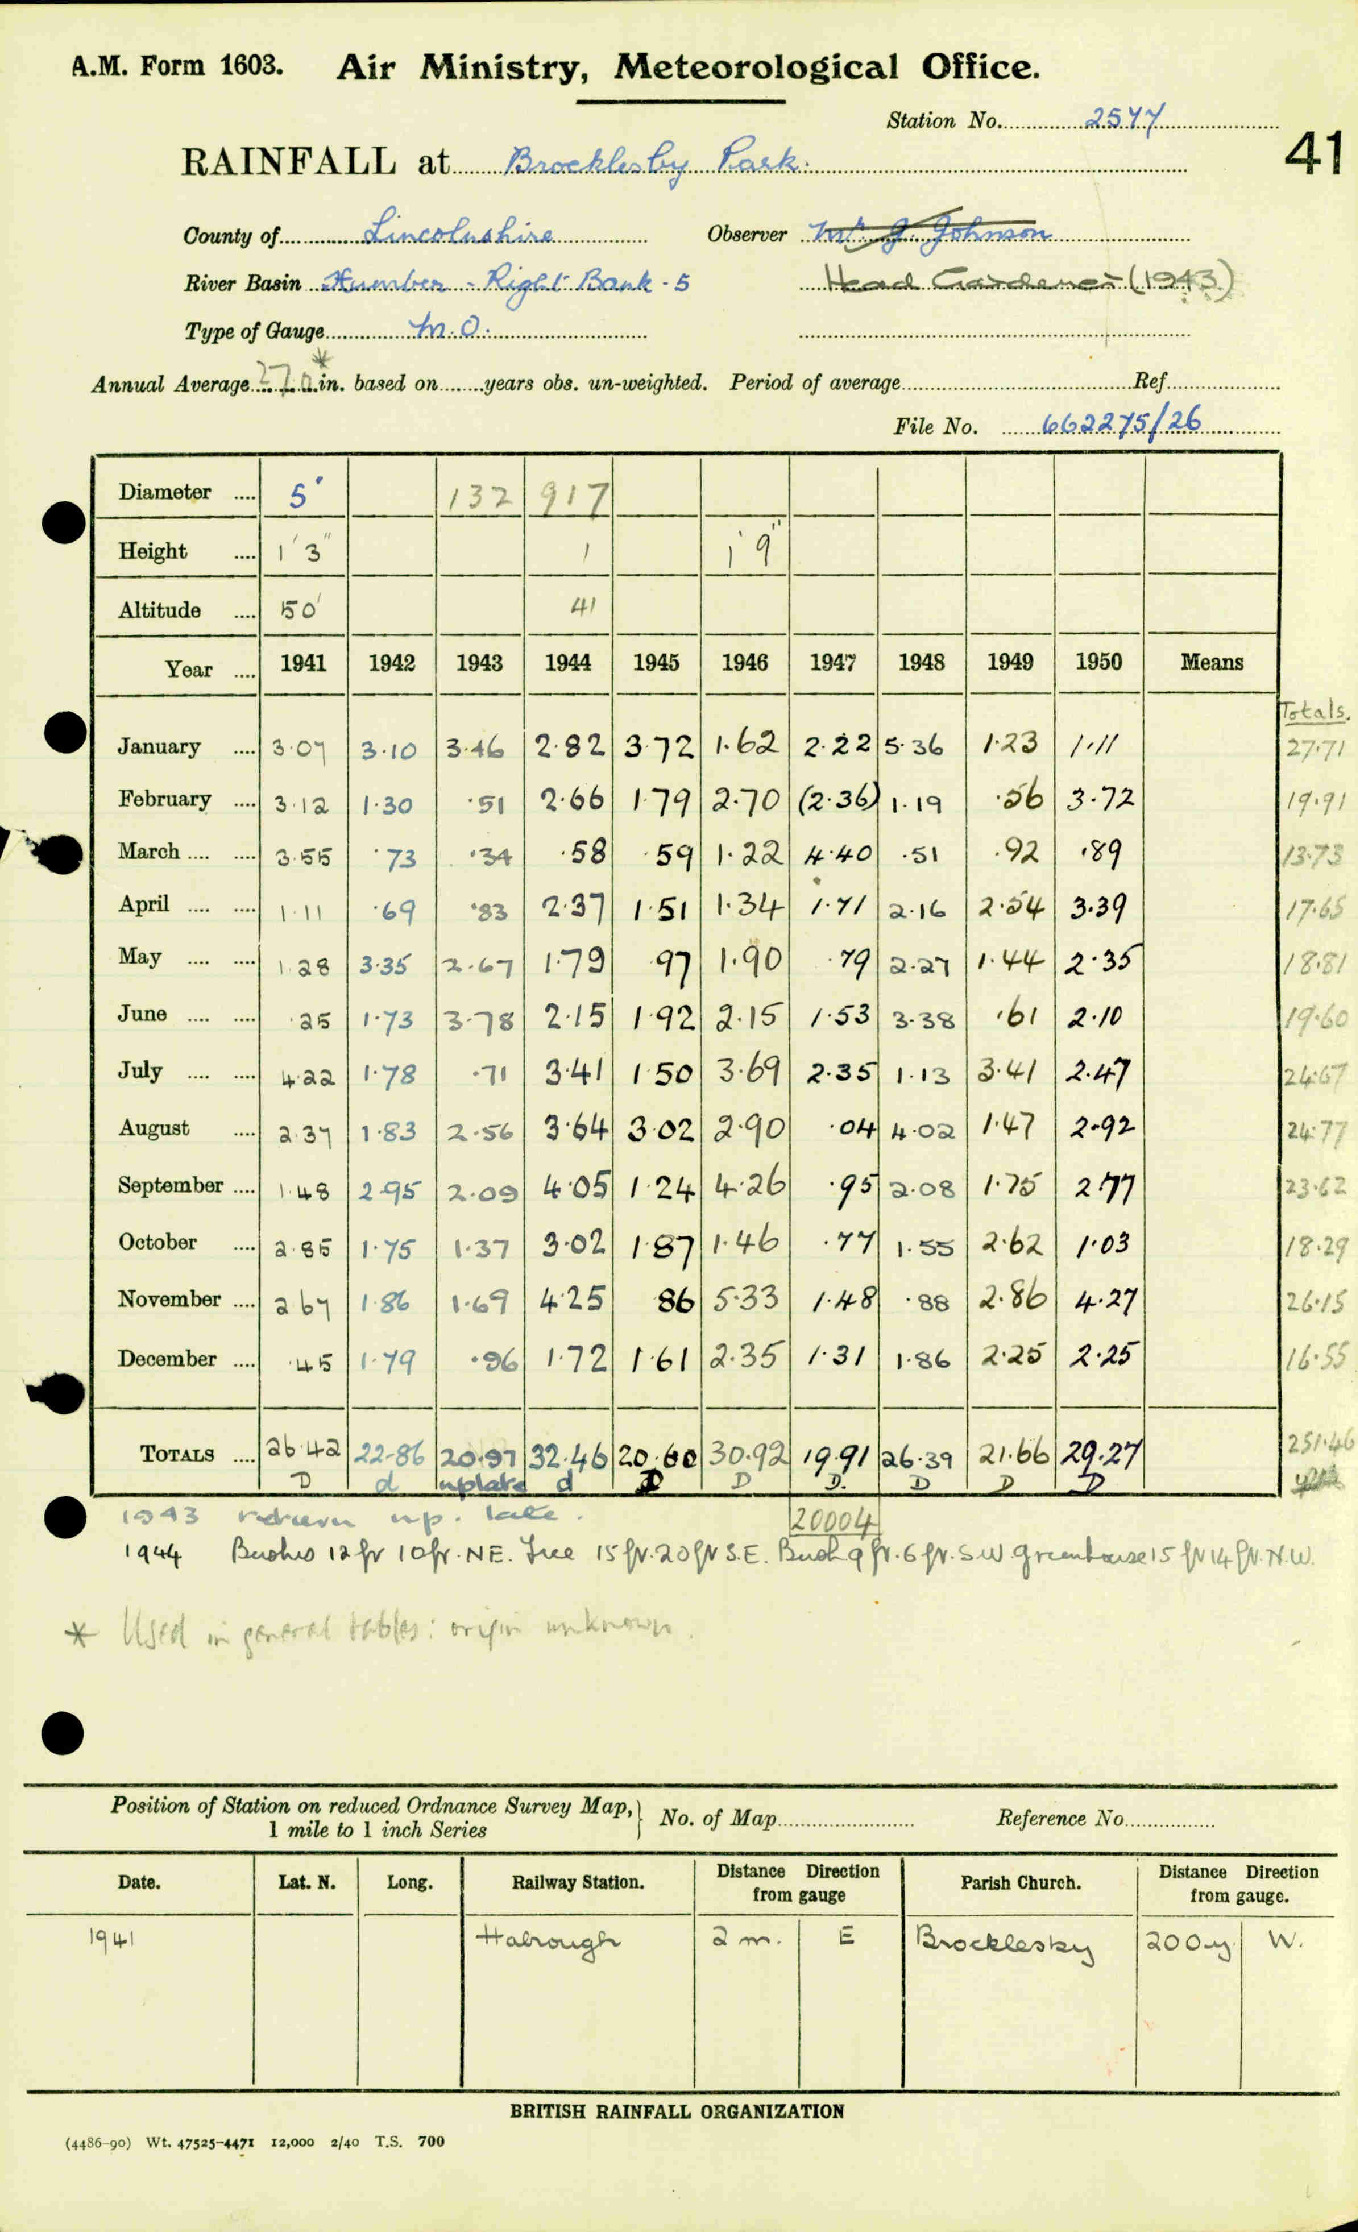 A.M. Form 1603. Air Ministry, Meteorological Office.
Station No. 2577
41
RAINFALL at Brocklesby Park.
County of Lincolnshire Observer Mr. J. Johnson
River Basin Humber - Right Bank - 5 Head Gardener (1943)
Type of Gauge M.O.
Annual Average 27.0 * in. based on years obs. un-weighted. Period of average Ref.
File No. 662275/26
Diameter 5" 132 917
Height 1' 3" 1 1' 9"
Altitude 50' 41
Year 1941 1942 1943 1944 1945 1946 1947 1948 1949 1950 Means
Totals.
January 3.07 3.10 3.46 2.82 3.72 1.62 2.22 5.36 1.23 1.11 27.71
February 3.12 1.30 .51 2.66 1.79 2.70 (2.36) 1.19 .56 3.72 19.91
March 3.55 .73 .34 .58 .59 1.22 4.40 .51 .92 .89 13.73
April 1.11 .69 .83 2.37 1.51 1.34 1.71 2.16 2.54 3.39 17.65
May 1.28 3.35 2.67 1.79 .97 1.90 .79 2.27 1.44 2.35 18.81
June .25 1.73 3.78 2.15 1.92 2.15 1.53 3.38 .61 2.10 19.60
July 4.22 1.78 .71 3.41 1.50 3.69 2.35 1.13 3.41 2.47 24.67
August 2.37 1.83 2.56 3.64 3.02 2.90 .04 4.02 1.47 2.92 24.77
September 1.48 2.95 2.09 4.05 1.24 4.26 .95 2.08 1.75 2.77 23.62
October 2.85 1.75 1.37 3.02 1.87 1.46 .77 1.55 2.62 1.03 18.29
November 2.67 1.86 1.69 4.25 .86 5.33 1.48 .88 2.86 4.27 26.15
December .45 1.79 .96 1.72 1.61 2.35 1.31 1.86 2.25 2.25 16.55
TOTALS 26.42 22.86 20.97 32.46 20.60 30.92 19.91 26.39 21.66 29.27 251.46
D d up late d D D D. D D D
1943 return up. late. 20004
1944 Bushes 12 ft 10 ft. NE. Tree 15 ft. 20 ft S.E. Bush 9 ft. 6 ft. S.W. greenhouse 15 ft 14 ft. N.W.
* Used in general tables: origin unknown.
Position of Station on reduced Ordnance Survey Map, 1 mile to 1 inch Series } No. of Map Reference No.
Date. Lat. N. Long. Railway Station. Distance Direction from gauge Parish Church. Distance Direction from gauge.
1941 Habrough 2 m. E Brocklesby 200 y W.
BRITISH RAINFALL ORGANIZATION
(4486-90) Wt. 47525-4471 12,000 2/40 T.S. 700